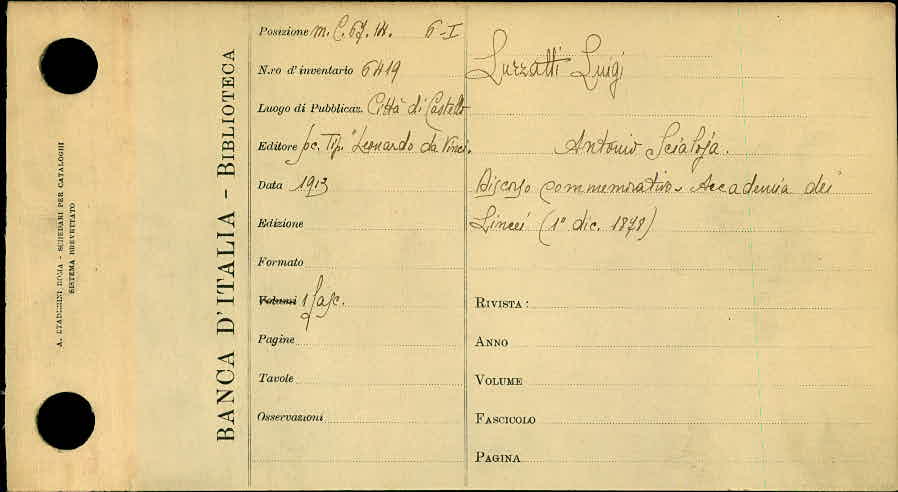 A. STADERINI ROMA - SCHEDARI PER CATALOGHI
SISTEMA BREVETTATO
BANCA D'ITALIA - BIBLIOTECA
Posizione m. C. 67. 14. 6-I
N.ro d'inventario 6419
Luogo di Pubblicaz. Città di Castello
Editore Soc. Tip. "Leonardo da Vinci.
Data 1913
Edizione
Formato
Volumi 1 fasc.
Pagine
Tavole
Osservazioni
Luzzatti Luigi
Antonio Scialoja.
Discorso commemorativo - Accademia dei
Lincei (1° dic. 1878)
RIVISTA :
ANNO
VOLUME
FASCICOLO
PAGINA